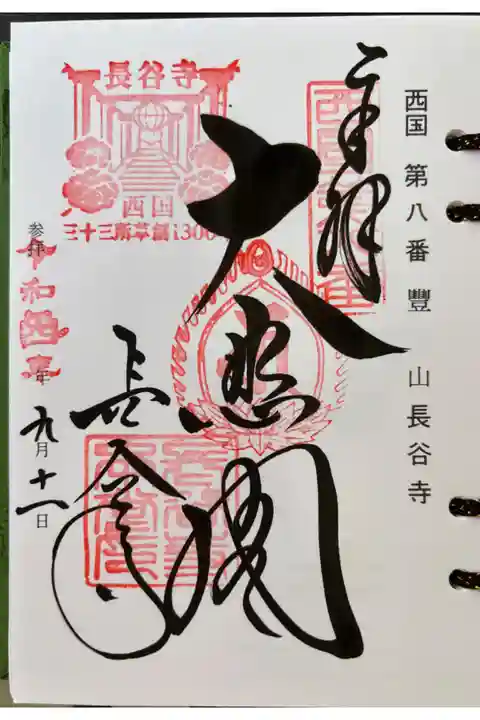 西国 第八番 豐山長谷寺
奉拜
大悲閣
長谷寺
長谷寺
西国
三十三所草創1300
参拝
令和四年
九月十一日